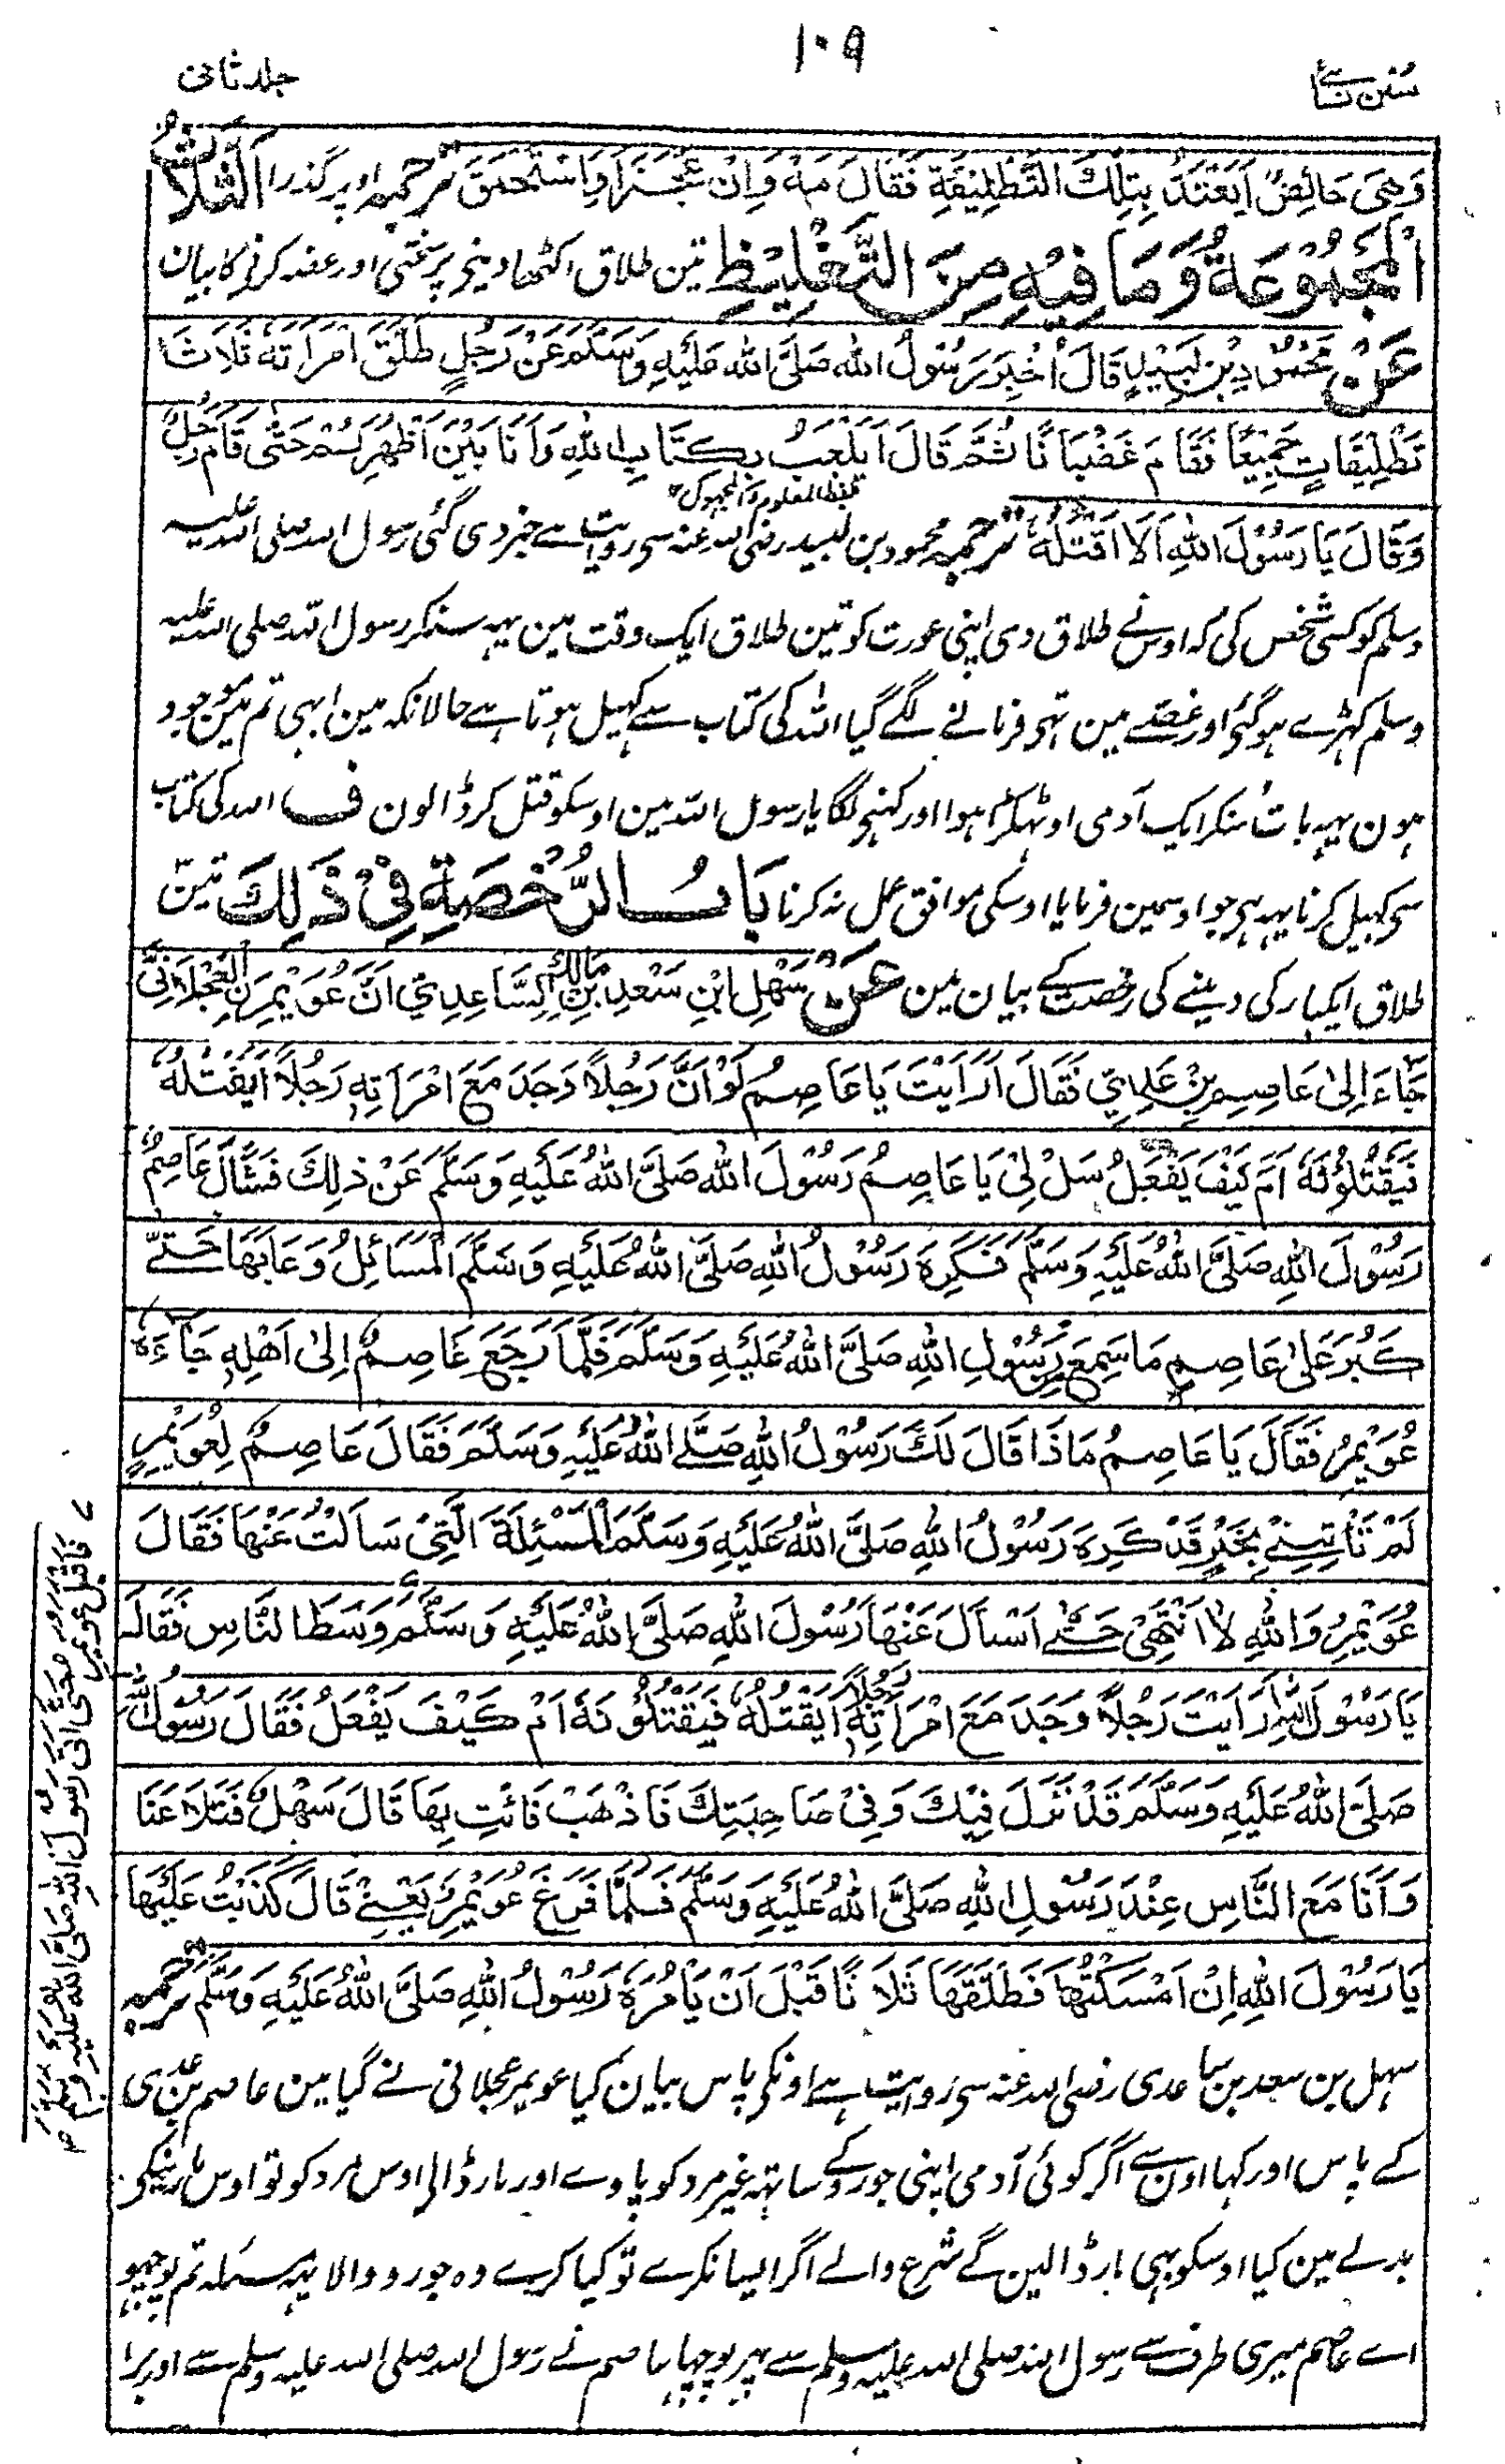 ١٠٩
سُنن نسائے
جلد ثانی
وَهِىَ حَائِضٌ اَيَعْتَدُّ بِتِلْكَ التَّطْلِيْقَةِ فَقَالَ مَهْ وَاِنْ عَجَزَ وَاسْتَحْمَقَ ترجمہ اوپر گذرا اَلثَّلَاثُ
الْمَجْمُوْعَةُ وَمَا فِيْهِ مِنَ التَّغْلِيْظِ تین طلاق اکٹھا دینے پر سختی اور غصہ کرنے کا بیان
عَنْ مَحْمُوْدِ بْنِ لَبِيْدٍ قَالَ اُخْبِرَ رَسُوْلُ اللهِ صَلَّى اللهُ عَلَيْهِ وَسَلَّمَ عَنْ رَجُلٍ طَلَّقَ امْرَاَتَهٗ ثَلَاثَ
تَطْلِيْقَاتٍ جَمِيْعًا فَقَامَ غَضْبَانًا ثُمَّ قَالَ اَيَلْعَبُ بِكِتَابِ اللهِ وَاَنَا بَيْنَ اَظْهُرِكُمْ حَتّٰى قَامَ رَجُلٌ
بلفظ المعلوم والمجہول
وَقَالَ يَا رَسُوْلَ اللهِ اَلَا اَقْتُلُهٗ ترجمہ محمود بن لبید رضی اللہ عنہ سے روایت ہے خبر دی گئی رسول اللہ صلی اللہ علیہ
وسلم کو کسی شخص کی کہ اوس نے طلاق دی اپنی عورت کو تین طلاق ایک وقت مین یہہ سنکر رسول اللہ صلی اللہ علیہ
وسلم کہڑے ہو گئے اور غصے مین تہے فرمانے لگے گیا اللہ کی کتاب سے کہیل ہوتا ہے حالانکہ مین ابہی تم مین موجود
ہون یہہ بات سنکر ایک آدمی اوٹہہ کہڑا ہوا اور کہنے لگا یا رسول اللہ مین اوسکو قتل کر ڈالون ف اللہ کی کتاب
سے کہیل کرنا یہہ ہے جو اوسمین فرمایا اوسکی موافق عمل نہ کرنا بَابُ الرُّخْصَةِ فِىْ ذٰلِكَ تین
طلاق ایکبار کی دینے کی رخصت کے بیان مین عَنْ سَهْلِ ابْنِ سَعْدِ بْنِ مَالِكٍ السَّاعِدِيِّ اَنَّ عُوَيْمِرَ الْعَجْلَانِىَّ
جَاءَ اِلٰى عَاصِمِ بْنِ عَدِيٍّ فَقَالَ اَرَاَيْتَ يَا عَاصِمُ لَوْ اَنَّ رَجُلًا وَجَدَ مَعَ امْرَاَتِهٖ رَجُلًا اَيَقْتُلُهٗ
فَيَقْتُلُوْنَهٗ اَمْ كَيْفَ يَفْعَلُ سَلْ لِىْ يَا عَاصِمُ رَسُوْلَ اللهِ صَلَّى اللهُ عَلَيْهِ وَسَلَّمَ عَنْ ذٰلِكَ فَسَأَلَ عَاصِمٌ
رَسُوْلَ اللهِ صَلَّى اللهُ عَلَيْهِ وَسَلَّمَ فَكَرِهَ رَسُوْلُ اللهِ صَلَّى اللهُ عَلَيْهِ وَسَلَّمَ الْمَسَائِلَ وَعَابَهَا حَتّٰى
كَبُرَ عَلٰى عَاصِمٍ مَا سَمِعَ مِنْ رَسُوْلِ اللهِ صَلَّى اللهُ عَلَيْهِ وَسَلَّمَ فَلَمَّا رَجَعَ عَاصِمٌ اِلٰى اَهْلِهٖ جَاءَهٗ
عُوَيْمِرٌ فَقَالَ يَا عَاصِمُ مَاذَا قَالَ لَكَ رَسُوْلُ اللهِ صَلَّى اللهُ عَلَيْهِ وَسَلَّمَ فَقَالَ عَاصِمٌ لِعُوَيْمِرٍ
لَمْ تَأْتِنِىْ بِخَيْرٍ قَدْ كَرِهَ رَسُوْلُ اللهِ صَلَّى اللهُ عَلَيْهِ وَسَلَّمَ الْمَسْئَلَةَ الَّتِىْ سَاَلْتُ عَنْهَا فَقَالَ
عُوَيْمِرٌ وَاللهِ لَا اَنْتَهِىْ حَتّٰى اَسْاَلَ عَنْهَا رَسُوْلَ اللهِ صَلَّى اللهُ عَلَيْهِ وَسَلَّمَ وَسَطَ النَّاسِ فَقَالَ
فَاَقْبَلَ عُوَيْمِرٌ حَتّٰى اَتٰى رَسُوْلَ اللهِ صَلَّى اللهُ عَلَيْهِ وَسَلَّمَ
يَا رَسُوْلَ اللهِ اَرَاَيْتَ رَجُلًا وَجَدَ مَعَ امْرَاَتِهٖ رَجُلًا اَيَقْتُلُهٗ فَيَقْتُلُوْنَهٗ اَمْ كَيْفَ يَفْعَلُ فَقَالَ رَسُوْلُ اللهِ
صَلَّى اللهُ عَلَيْهِ وَسَلَّمَ قَدْ نَزَلَ فِيْكَ وَفِىْ صَاحِبَتِكَ فَاذْهَبْ فَائْتِ بِهَا قَالَ سَهْلٌ فَتَلَاعَنَا
وَاَنَا مَعَ النَّاسِ عِنْدَ رَسُوْلِ اللهِ صَلَّى اللهُ عَلَيْهِ وَسَلَّمَ فَلَمَّا فَرَغَ عُوَيْمِرٌ يَعْنِىْ قَالَ كَذَبْتُ عَلَيْهَا
يَا رَسُوْلَ اللهِ اِنْ اَمْسَكْتُهَا فَطَلَّقَهَا ثَلَاثًا قَبْلَ اَنْ يَاْمُرَهٗ رَسُوْلُ اللهِ صَلَّى اللهُ عَلَيْهِ وَسَلَّمَ ترجمہ
سہل بن سعد بن ساعدی رضی اللہ عنہ سے روایت ہے اونکے پاس بیان کیا عویمر عجلانی نے گیا مین عاصم بن عدی
کے پاس اور کہا اون سے اگر کوئی آدمی اپنی جورو کے ساتہہ غیر مرد کو پاوے اور مار ڈالے اوس مرد کو تو اوس مارنیکے
بدلے مین کیا اوسکو بہی مار ڈالین گے شرع والے اگر ایسا نکرے تو کیا کرے وہ جورو والا یہہ مسئلہ تم پوچہو
اے عاصم میری طرف سے رسول اللہ صلی اللہ علیہ وسلم سے پہر پوچہا عاصم نے رسول اللہ صلی اللہ علیہ وسلم سے اور برا